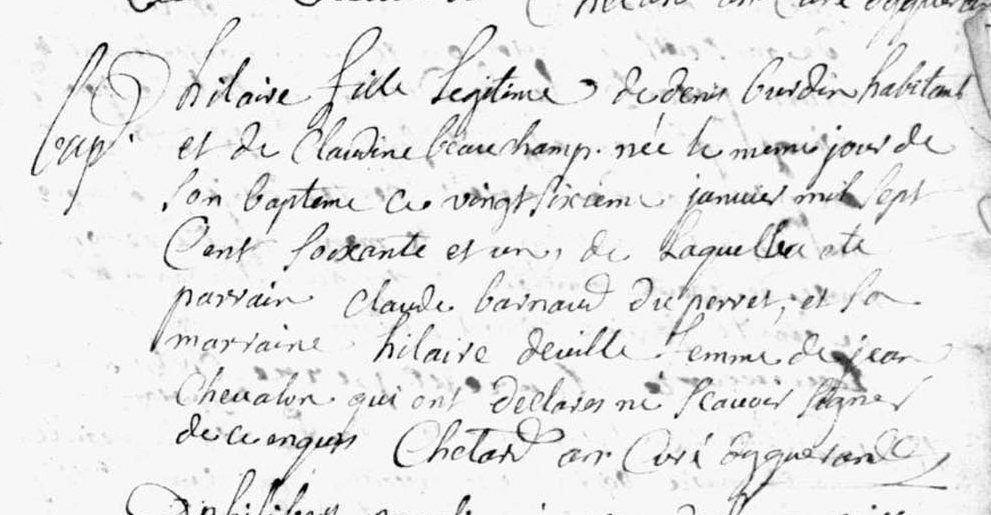 bap. hilaire fille Legitime de denis burdin habitant
et de Claudine beauchamp. née le meme jour de
son bapteme ce vingt sixieme janvier mil sept
Cent soixante et un, de Laquelle a ete
parrain Claude barnaud du perret, et sa
marraine hilaire deville femme de jean
Chevalon qui ont declares ne scavoir signer
de ce enquis Chetard an. Curé d'yguerande